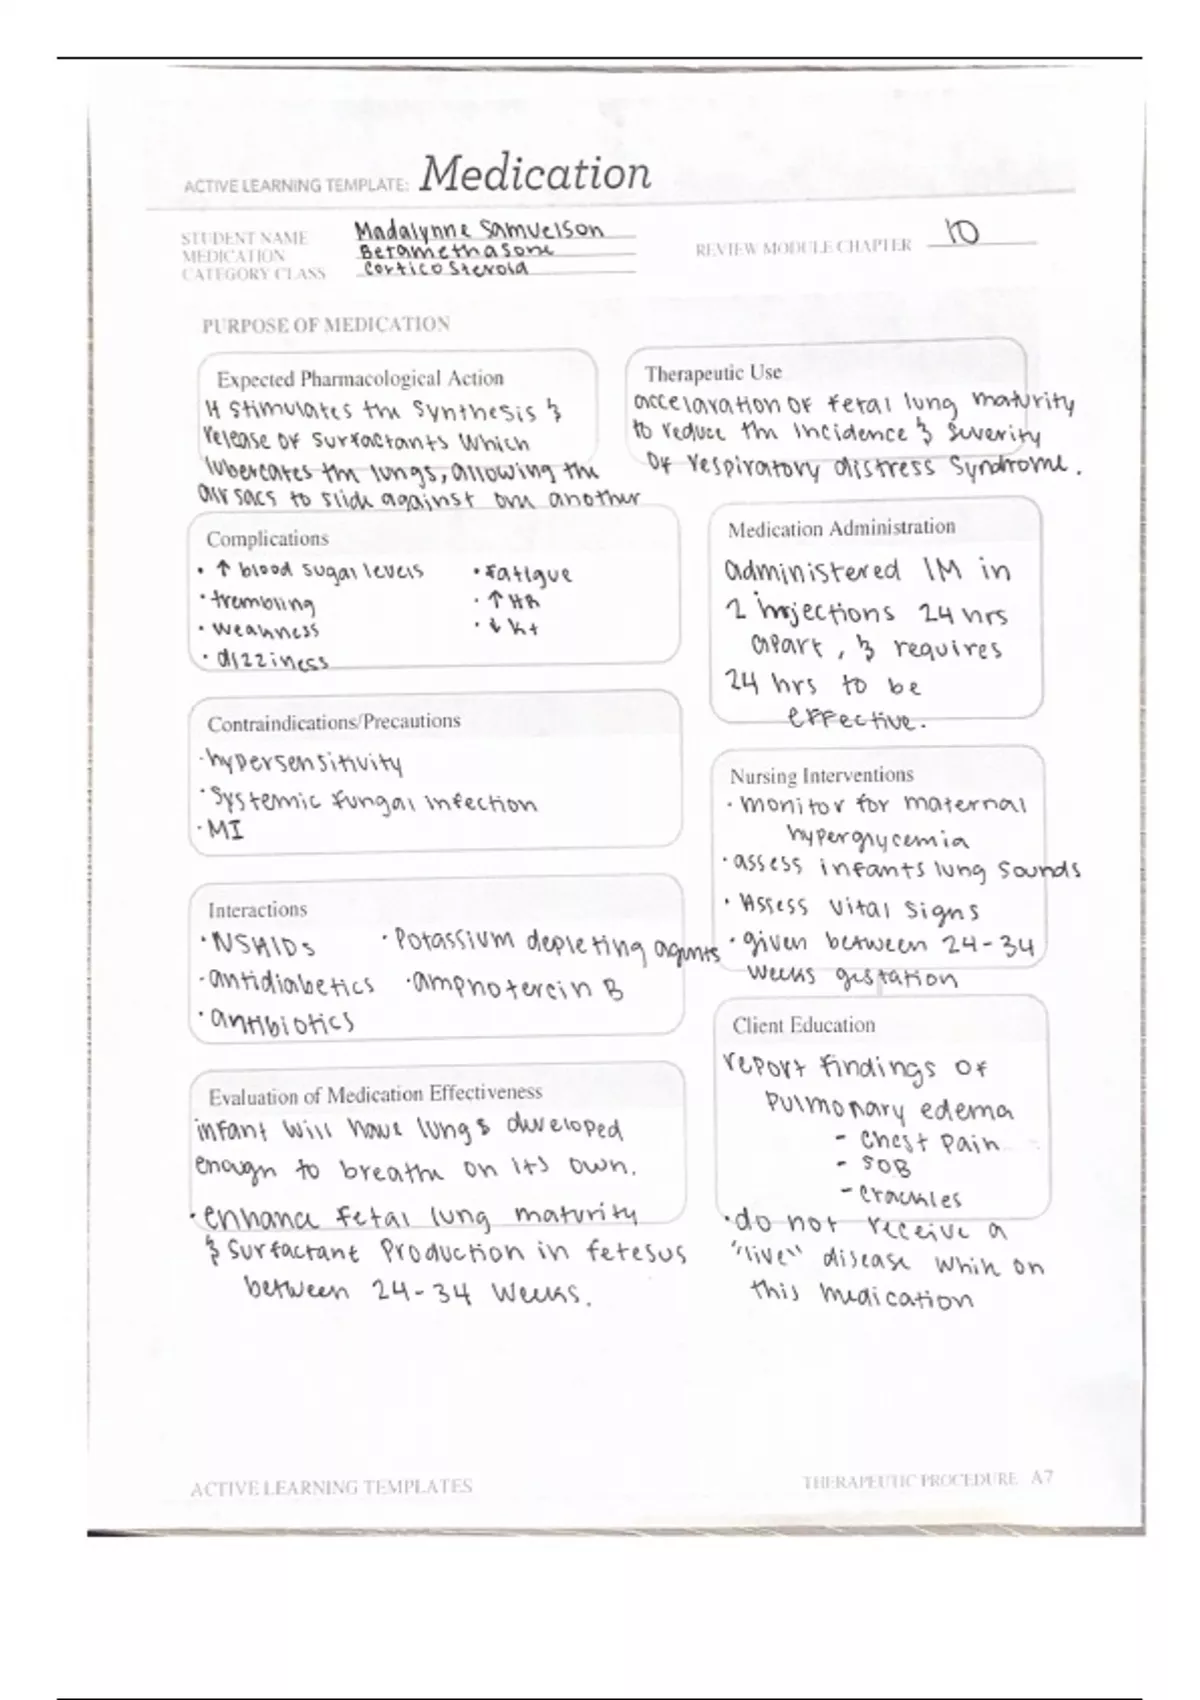 ACTIVE LEARNING TEMPLATE: Medication
STUDENT NAME Madalynne Samuelson
MEDICATION Betamethasone
CATEGORY CLASS Corticosteroid
REVIEW MODULE CHAPTER 10
PURPOSE OF MEDICATION
Expected Pharmacological Action
It stimulates the synthesis &
release of surfactants which
lubercates the lungs, allowing the
air sacs to slide against one another
Therapeutic Use
accelaration of fetal lung maturity
to reduce the incidence & severity
of respiratory distress syndrome.
Complications
• ↑ blood sugar levels
• trembling
• weakness
• dizziness
• fatigue
• ↑ HR
• ↓ K+
Medication Administration
administered IM in
2 injections 24 hrs
apart, & requires
24 hrs to be
effective.
Contraindications/Precautions
• hypersensitivity
• systemic fungal infection
• MI
Nursing Interventions
• monitor for maternal
hyperglycemia
• assess infants lung sounds
• Assess vital signs
• given between 24-34
weeks gestation
Interactions
• NSAIDs
• antidiabetics
• antibiotics
• Potassium depleting agents
• amphotercin B
Client Education
report findings of
pulmonary edema
- chest pain
- SOB
- crackles
• do not receive a
"live" disease while on
this medication
Evaluation of Medication Effectiveness
infant will have lungs developed
enough to breathe on its own.
• enhance fetal lung maturity
& surfactant production in fetesus
between 24-34 weeks.
ACTIVE LEARNING TEMPLATES
THERAPEUTIC PROCEDURE A7